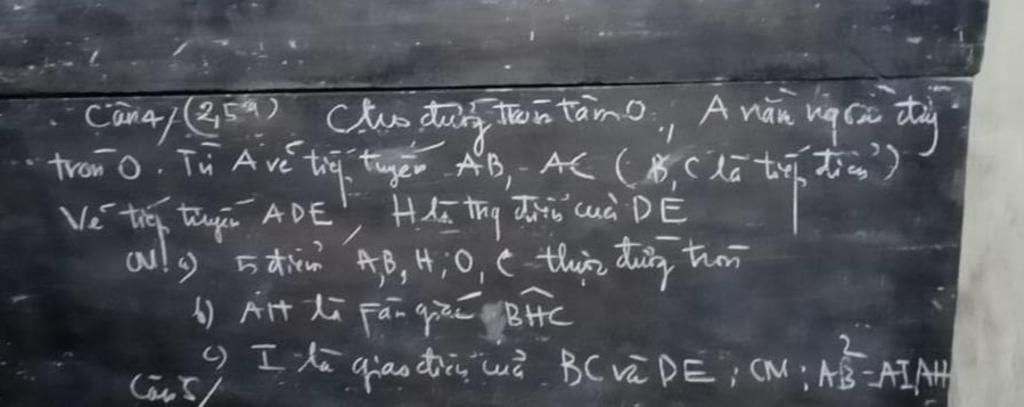 Câu 4/ (2,5đ) Cho đường tròn tâm O, A nằm ngoài đường
tròn O. Từ A vẽ tiếp tuyến AB, AC (B, C là tiếp điểm)
Vẽ tiếp tuyến ADE H là trg điểm của DE
CM: a) 5 điểm A, B, H, O, C thuộc đường tròn
b) AH là fân giác BHC
c) I là giao điểm của BC và DE; CM: AB² = AI.AH
Câu 5/